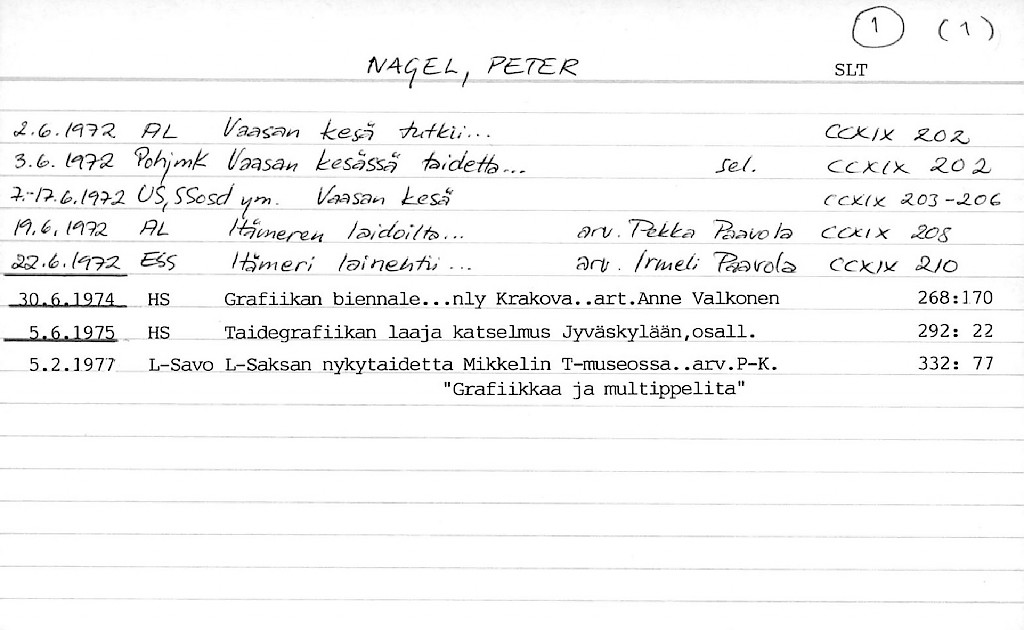 1 (1)
NAGEL, PETER SLT
2.6.1972 AL Vaasan kesä tutkii... CCXIX 202
3.6.1972 Pohjmk Vaasan kesässä taidetta... sel. CCXIX 202
7.-17.6.1972 US, SSosd ym. Vaasan kesä CCXIX 203-206
19.6.1972 AL Itämeren laidoilta... arv. Pekka Paavola CCXIX 208
22.6.1972 ESS Itämeri lainehtii... arv. Irmeli Paavola CCXIX 210
30.6.1974 HS Grafiikan biennale...nly Krakova..art.Anne Valkonen 268:170
5.6.1975 HS Taidegrafiikan laaja katselmus Jyväskylään,osall. 292: 22
5.2.1977 L-Savo L-Saksan nykytaidetta Mikkelin T-museossa..arv.P-K. 332: 77
"Grafiikkaa ja multippelita"